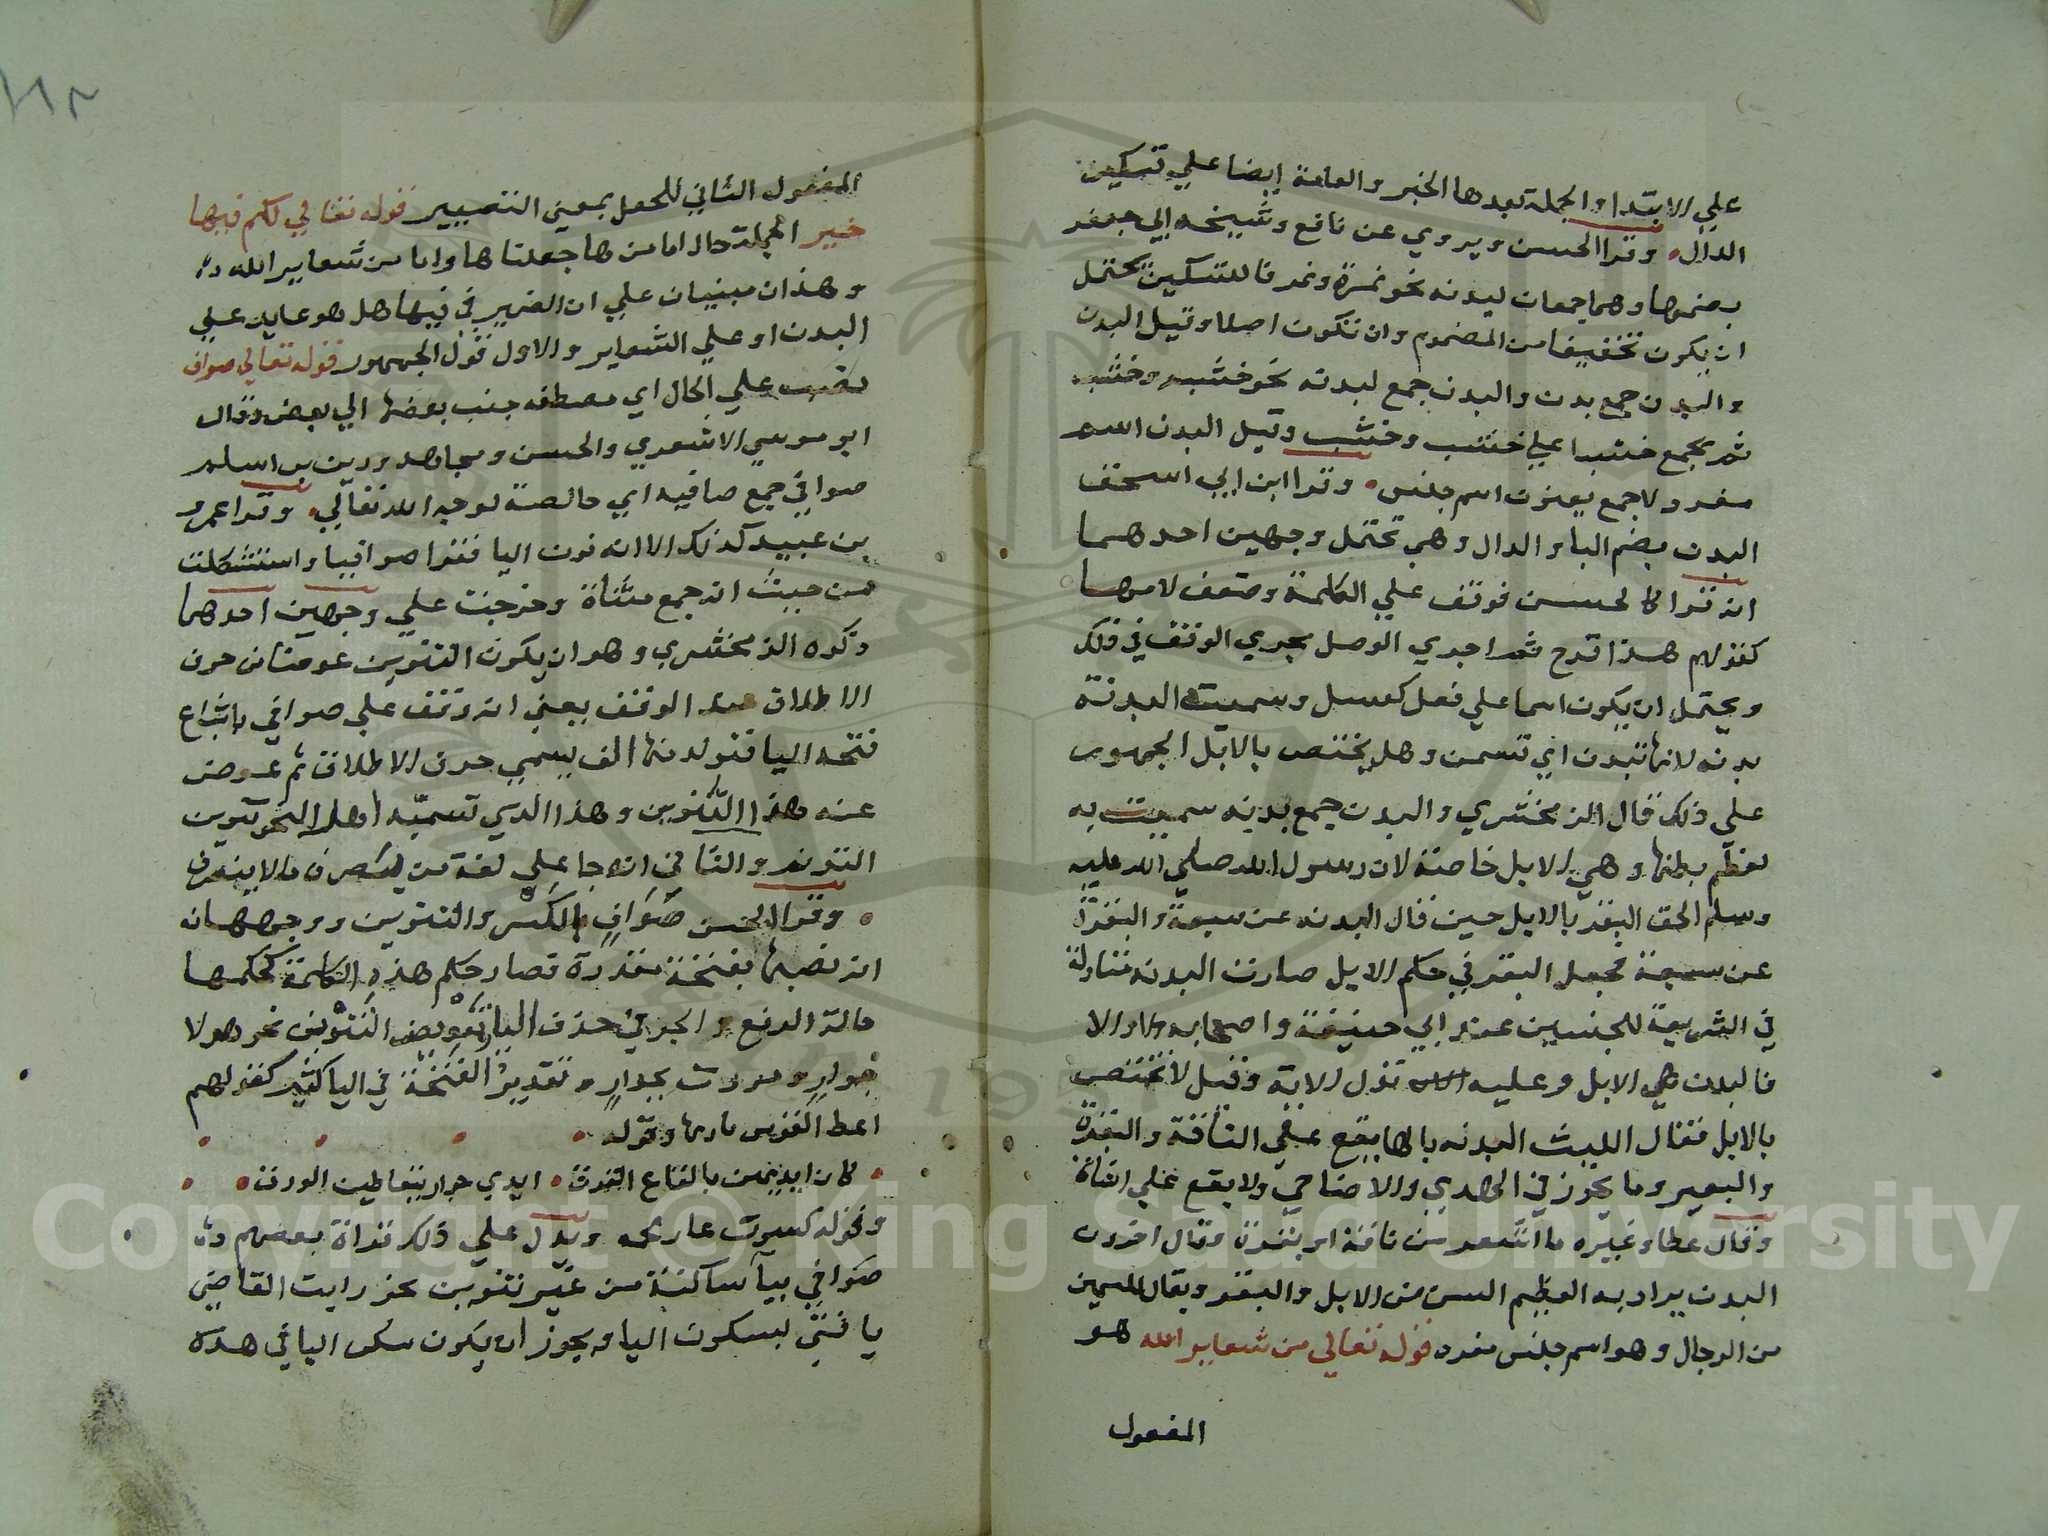 علي الابتدا والجملة بعدها الخبر والعامة ايضا علي تسكين
الدال وقرا الحسن ويروي عن نافع وشيخه ابي جعفر
بضمها وهما جمعان لبدنه نحو ثمرة وثمر فالتسكين يحتمل
ان يكون تخفيفا من المضموم وان تكون اصلا وقيل البدن
والبدن جمع بدن والبدن جمع لبدنه نحو خشبه وخشب
ثم يجمع خشبا علي خشب وخشب وقيل البدن اسم
مفرد لا جمع يعنون اسم جنس وقرا ابن ابي اسحق
البدن بضم البا والدال وهي تحتمل وجهين احدهما
انه قرا كالحسن فوقف علي الكلمة وضعف لامها
كقولهم هذا فرح ثم اجري الوصل مجري الوقف في ذلك
ويحتمل ان يكون اسما علي فعل كعسل وسميت البدنة
بدنه لانها تبدن اي تسمن وهل يختص بالابل الجمهور
علي ذلك قال الزمخشري والبدن جمع بدنه سميت به
لعظم بطنها وهي الابل خاصة لان رسول الله صلي الله عليه
وسلم الحق البقر بالابل حين قال البدنه عن سبعة والبقرة
عن سبعة فجعل البقر في حكم الابل صارت البدنه متناولة
في الشريعة للجنسين عند ابي حنيفة واصحابه والا
فالبدن هي الابل وعليه تدل الاية وقيل لا تختص
بالابل فقال الليث البدنه بالها يقع علي الناقة والبقرة
والبعير وما يجوز في الهدي والاضاحي ولا يقع علي الشاة
وقال عطا وغيره ما اشعر من ناقة او بقرة وقال اخرون
البدن يراد به العظيم السن من الابل والبقر ويقال للسمين
من الرجال وهو اسم جنس مفرد قوله تعالي من شعاير الله هو
المفعول
المفعول الثاني للجعل بمعني التصيير قوله تعالي لكم فيها
خير الجملة حال اما من ها جعلناها واما من شعاير الله
وهذان مبنيان علي ان الضمير في فيها هل هو عايد علي
البدن او علي الشعاير والاول قول الجمهور قوله تعالي صواف
نصب علي الحال اي مصطفه جنب بعضها الي بعض وقال
ابو موسي الاشعري والحسن ومجاهد وزيد بن اسلم
صوافي جمع صافيه اي خالصة لوجه الله تعالي وقرا عمرو
بن عبيد كذلك الا انه نون اليا فقرا صوافيا واستشكلت
من حيث انه جمع متناه وخرجت علي وجهين احدهما
ذكره الزمخشري وهو ان يكون التنوين عوضا من حرف
الاطلاق عند الوقف يعني انه وقف علي صوافي باشباع
فتحه اليا فتولد منها الف يسمي حرف الاطلاق ثم عوض
عنه هذا التنوين وهذا الذي تسميه اهل النحو تنوين
الترنم والثاني انه جا علي لغة من يصرف ما لا ينصرف
وقرا الحسن صواف بالكسر والتنوين ووجهها انه
انه نصبها بفتحة مقدرة فصار حكم هذه الكلمة كحكمها
حالة الرفع والجر في حذف اليا وتعويض التنوين نحو هولا
جوار ومررت بجوار وتقدير الفتحة في اليا كثير كقولهم
اعط القوس باريها وقوله
كان ايديهن بالقاع القرق ايدي جوار يتعاطين الورق
وقوله كسوت عاري ويدل علي ذلك قراة بعضهم
صوافي بيا ساكنة من غير تنوين نحو رايت القاضي
يا فتي بسكون اليا ويجوز ان يكون سكن اليا في هذه